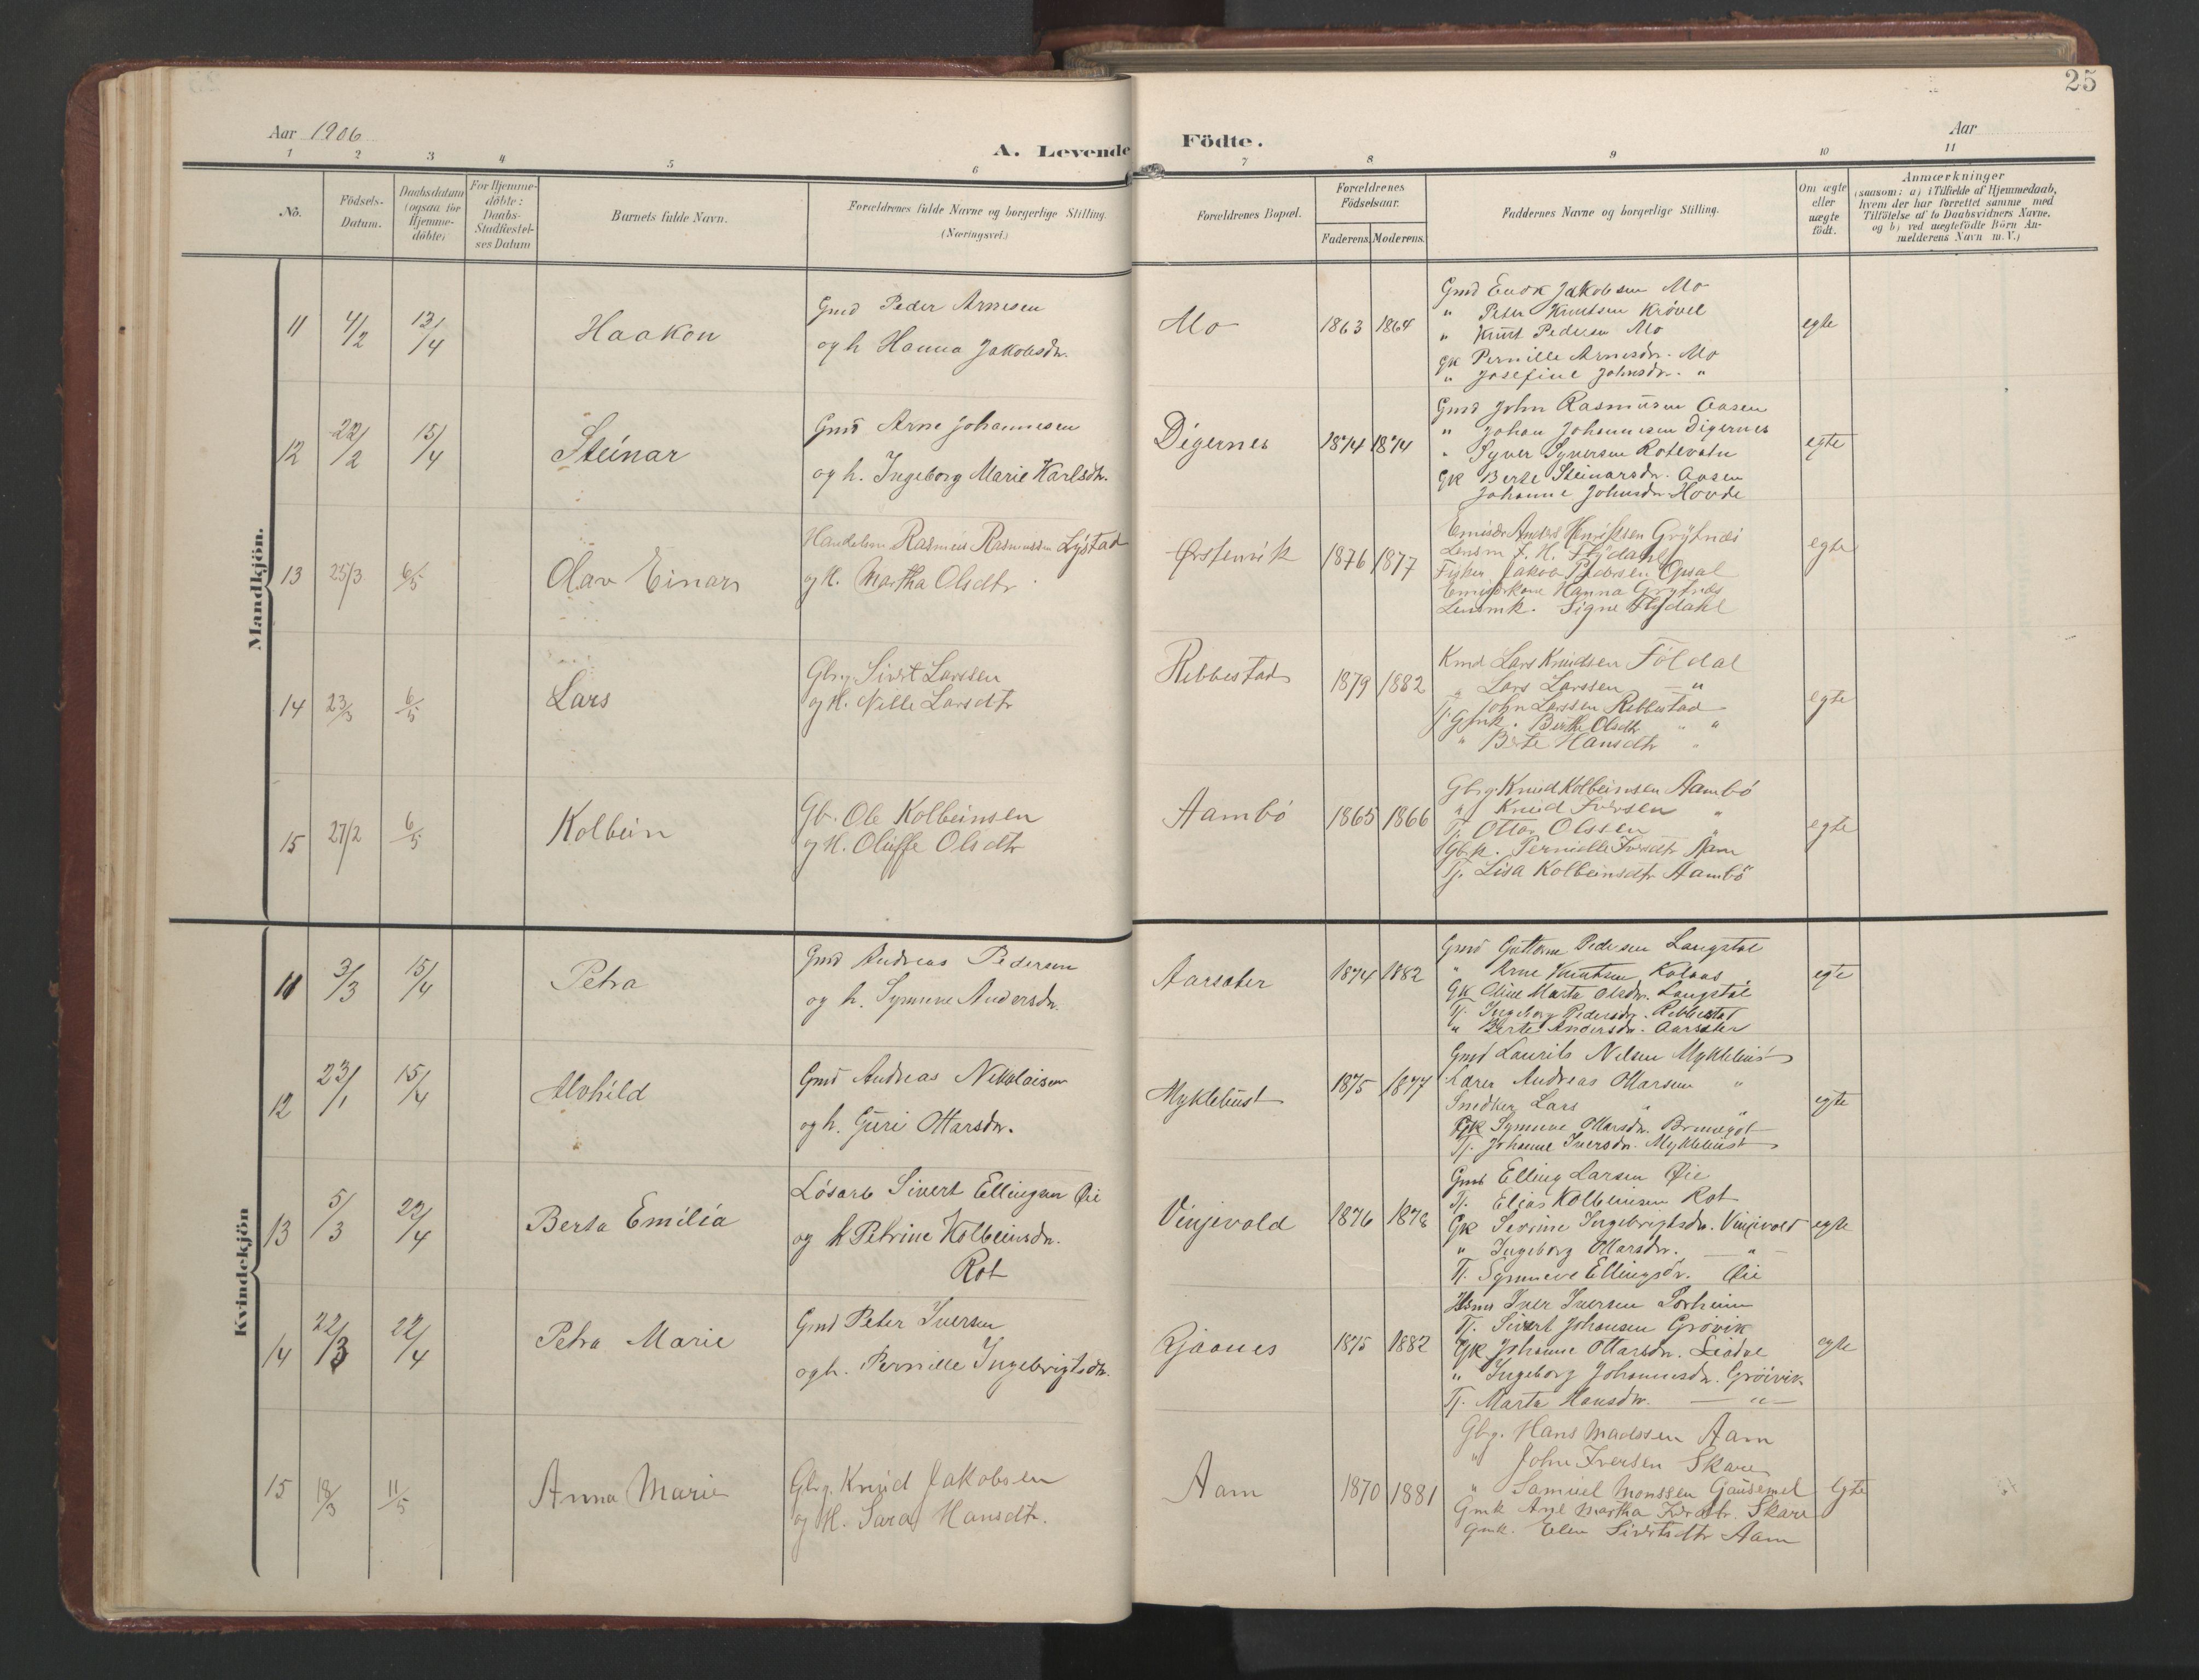 25
Aar 1906
A. Levende Födte.
Aar
1 2 3 4 5 6 7 8 9 10 11
No.
Födsels-Datum.
Daabsdatum (ogsaa for Hjemme-döbte)
For Hjemme-döbte: Daabs-Stadfæstel-ses Datum
Barnets fulde Navn.
Forældrenes fulde Navne og borgerlige Stilling. (Næringsvei.)
Forældrenes Bopæl.
Forældrenes Födselsaar.
Faderens. Moderens.
Faddernes Navne og borgerlige Stilling.
Om ægte eller uægte födt.
Anmærkninger
(saasom: a) i Tilfælde af Hjemmedaab, hvem der har forrettet samme med Tilföielse af to Daabsvidners Navne. og b) ved uægtefödte Börn An-melderens Navn m. V.)
Mandkjön.
11 4/2 13/4 Haakon
Gmd Peder Arnesen
og h Hanna Jakobsdr.
Mo 1863 1864
Gmd Enok Jakobsen Mo
" Peter Knutsen Krövel
" Knut Pedersen Mo
gk Pernille Arnesdr. Mo
" Josefine Johnsdr. "
egte
12 22/2 15/4 Steinar
Gmd Arne Johannesen
og h. Ingeborg Marie Karlsdr.
Digernes 1874 1874
Gmd John Rasmusen Aasen
" Johan Johannesen Digernes
" Syver Syversen Rotevatn
gk Berte Steinarsdr. Aasen
Johanne Johnsdr Hovde
egte
13 25/3 6/5 Olav Einar
Handelsm Rasmus Rasmussen Lystad
og H. Martha Olsdtr
Ørstenvik 1876 1877
Emisær Anders Henriksen Grytnæs
Lensm J. H. Flydahl
Fisker Jakob Pedersen Opsal
Emisærkone Hanna Grytnæs
Lensmk. Signe Flydahl
egte
14 23/3 6/5 Lars
Gbrg Sivert Larssen
og H. Nille Larsdtr
Ribbestad 1879 1882
Kmd Lars Knudsen Földal
" Lars Larssen "
Tj. John Larssen Ribbestad
Gmk. Birthe Olsdtr " "
" Berte Hansdtr "
egte
15 27/2 6/5 Kolbein
Gb. Ole Kolbeinsen
og H. Oluffe Olsdtr
Aambö 1865 1866
Gbrg Knud Kolbeinsen Aambö
" Knud Iversen "
Tj. Ottar Olssen "
Gbk. Pernille Iversdtr Aam
Tj. Lisa Kolbeinsdtr Aambö
egte
Kvindekjön
11 3/3 15/4 Petra
Gmd Andreas Pedersen
og h. Synneve Andersdr.
Aarsæter 1874 1882
Gmd Guttorm Pedersen Langstöl
" Arne Knutsen Kolaas
Gk Oline Marta Olsdr. Langstöl
Tj. Ingeborg Pedersdr. Ribbestad
" Berte Andersdr. Aarsæter
egte
12 23/1 15/4 Alvhild
Gmd Andreas Nikolaisen
og h. Guri Ottarsdr.
Myklebust 1875 1877
Gmd Laurits Nilsen Myklebust
Lærer Andreas Ottarsen "
Snedker Lars " "
Gk Synneve Ottarsdr.
Tj. Johanne Iversdr. Myklebust
egte
13 5/3 22/4 Berta Emilia
Lösarb Sivert Ellingsen Øie
og h Petrine Kolbeinsdr.
Rot
Vinjevold 1876 1878
Gmd Elling Larsen Øie
Tj. Elias Kolbeinsen Rot
Gk Serine Ingebrigtsdr. Vinjevold
" Ingeborg Ottarsdr. — " —
Tj. Synneve Ellingsdr. Øie
egte
14 22/3 22/4 Petra Marie
Gmd Peter Iversen
og h. Pernille Ingebrigtsdr.
Gjaanes 1875 1882
Hsm Iver Iversen Sorheim
Tj. Sivert Johansen Grövik
Gk Johanne Ottarsdr.
" Ingeborg Johannesdr. Gröivik
Tj. Marta Hansdr. — " —
egte
15 18/3 11/5 Anna Marie
Gbrg. Knud Jakobsen
og H. Sara Hansdtr.
Aam 1870 1881
Gbg. Hans Madssen Aam
" John Iversen Skare
" Samuel Monssen Gausemel
Gmk Ane Martha Iversdtr. Skare
Gmk. Elen Sivertsdtr Aam
Egte